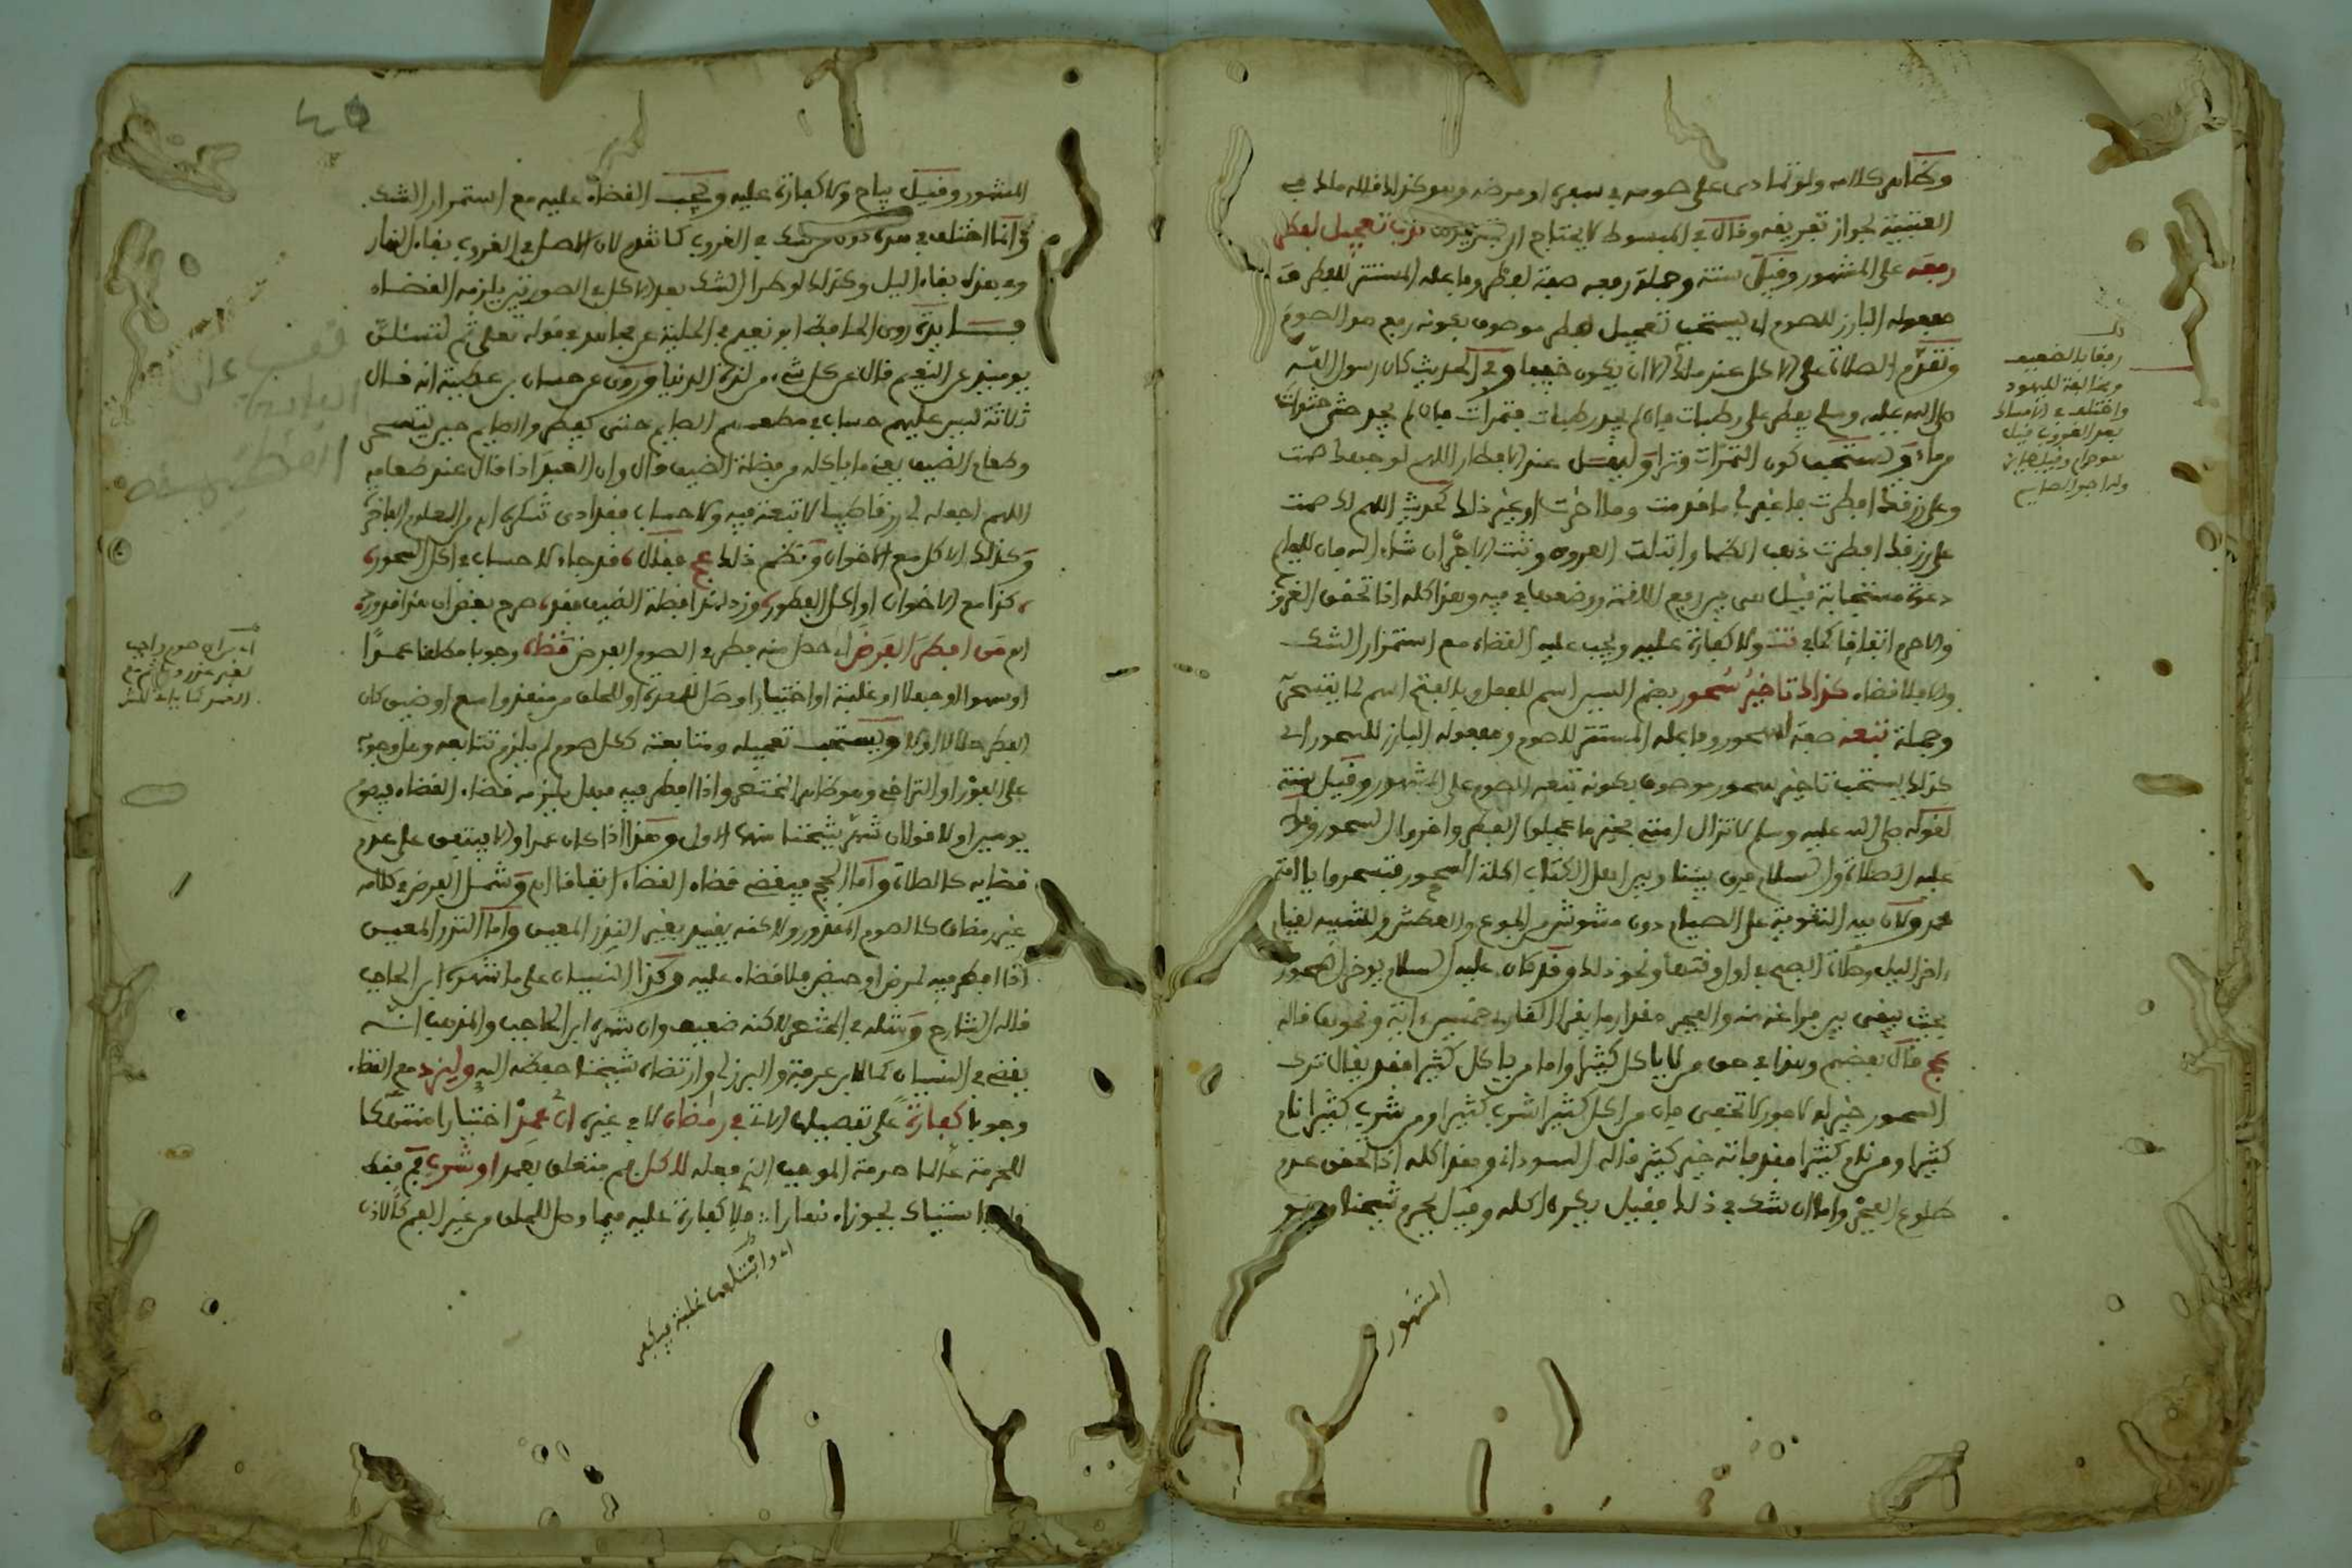 وظاهر كلامه ولو تمادى على صومه في سفره او مرضه وهو كذلك قاله مالك في
العتبية لجواز تفريقه وقال في المبسوط لا يحتاج ندب تعجيل لفطر
رفعه على المشهور وقيل سنة وجملة رفعه صفة لفطر وفاعله المستتر للفطر
مفعوله البارز للصوم اي يستحب تعجيل فطر موصوف بكونه رفع هو الصوم
ونقدم الصلاة على الاكل عند مالك الا ان يكون خفيفا وفي الحديث كان رسول الله
صلى الله عليه وسلم يفطر على رطبات فان لم يجد رطبات فتمرات فان لم يجد حثى حثوات
من ماء ويستحب كون التمرات وترا وليقل عند الافطار اللهم لك صمت
وعلى رزقك افطرت فاغفر لي ما قدمت وما اخرت او غير ذلك كحديث اللهم لك صمت
على رزقك افطرت ذهب الظما وابتلت العروق وثبت الاجر ان شاء الله فان للصايم
دعوة مستجابة قيل هي بين رفع اللقمة ووضعها في فيه وهذا كله اذا تحقق الغروب
والا حرم اتفاقا كما في تت ولا كفارة عليه ويجب عليه القضاء مع استمرار الشك
والا فلا قضاء كذاك تاخير سحور بضم السين اسم للفعل وبالفتح اسم لما يتسحر
وجملة تبعه صفة لسحور وفاعله المستتر للصوم ومفعوله البارز للسحور اي
كذلك يستحب تاخير سحور موصوف بكونه يتبعه الصوم على المشهور وقيل سنة
لقوله صلى الله عليه وسلم لا تزال امتي بخير ما عجلوا الفطر واخروا السحور وقوله
عليه الصلاة والسلام فرق بيننا وبين اهل الكتاب اكلة السحور فتسحروا يا امة
محمد ولان فيه التقوية على الصيام دون مشوش من الجوع والعطش وللتنبيه لقيام
اخر الليل وصلاة الصبح في اول وقتها ونحو ذلك وقد كان عليه السلام يوخر السحور
بحيث يبقى بين فراغه منه والفجر مقدار ما يقرا القارئ خمسين اية ونحوها قاله
عج قال بعضهم وهذا في حق من لا ياكل كثيرا واما من ياكل كثيرا فقد يقال ترك
السحور خير له لامور لا تخفى فان من اكل كثيرا شرب كثيرا ومن شرب كثيرا نام
كثيرا ومن نام كثيرا فقد فاته خير كثير قاله السوداني وهذا كله اذا تحقق عدم
طلوع الفجر واما ان شك في ذلك فقيل يكره اكله وقيل يحرم شيخنا وهو
المشهور
رفقا بالضعيف
ومخالفة لليهود
واختلف في الامساك
بعد الغروب قيل
هو حرام وقيل جايز
وله اجر الصايم
المشهور وقيل يباح ولا كفارة عليه ويجب القضاء عليه مع استمرار الشك
وانما اختلف في هذه دون من شك في الغروب كما تقدم لان الاصل في الغروب بقاء النهار
وفي هذه بقاء الليل وكذلك لو طرا الشك بعد الاكل في الصورتين يلزمه القضاء
فايدة روى الحافظ ابو نعيم في الحلية عن مجاهد في قوله تعلى ثم لتسئلن
يوميذ عن النعيم قال عن كل شيء من لذة الدنيا وروى عن حسان بن عطية انه قال
ثلاثة ليس عليهم حساب في مطعمهم الصايم حتى يفطر والصايم حين يتسحر
وطعام الضيف يعني ما ياكله من فضلة الضيف قال وان العبد اذا قال عند طعامه
اللهم اجعله لي رزقا طيبا لا تبعة فيه ولا حساب فقد ادى شكره
وكذلك الاكل مع الاخوان ونظم ذلك عج فقال قد جاء لا حساب في اكل السحور
كذا مع الاخوان او اكل الفطور وزد لهذا فضلة الضيف فقد صرح بعض ان هذا قد ورد
من افطر الفرض اي حصل منه فطر في الصوم الفرض قضاه وجوبا مطلقا عمدا
او سهوا او جهلا او غلبة او اختيارا وصل للمعدة او للحلق من منفذ واسع او ضيق كان
الفطر حلالا او لا ويستحب تعجيله ومتابعته ككل صوم لم يلزم تتابعه وهل وجوبه
على الفور او التراخي وهو ظاهر المختصر واذا افطر فيه فهل يلزمه قضاء القضاء فيصوم
يومين او لا قولان شهر شيخنا منها الاول وهذا اذا كان عمدا والا فيتفق على عدم
قضايه كالصلاة واما الحج فيقضى قضاء القضاء اتفاقا وشمل الفرض في كلامه
غير رمضان كالصوم المنذور ولاكنه يقيد بغير النذر المعين واما النذر المعين
اذا افطر فيه لمرض او حيض فلا قضاء عليه وكذا النسيان على ما شهره ابن الحاجب
قاله الشارح ومثله في المختصر لاكنه ضعيف وان شهره ابن الحاجب والمذهب انه
يقضي في النسيان كما لابن عرفة والبرزلي وارتضاه شيخنا حفظه الله وليزد مع القضاء
وجوبا كفارة على تفصيلها الاتي في رمضان لا في غيره ان عمد اختيارا منتهكا
للحرمة عالما حرمة الموجب الذي فعله لاكل فم متعلق بعمد او شرب فم فقط
استياك بجوزاء نهارا فلا كفارة عليه فيما وصل للحلق من غير الفم كالاذن
واستلعها غلبة فيكفر